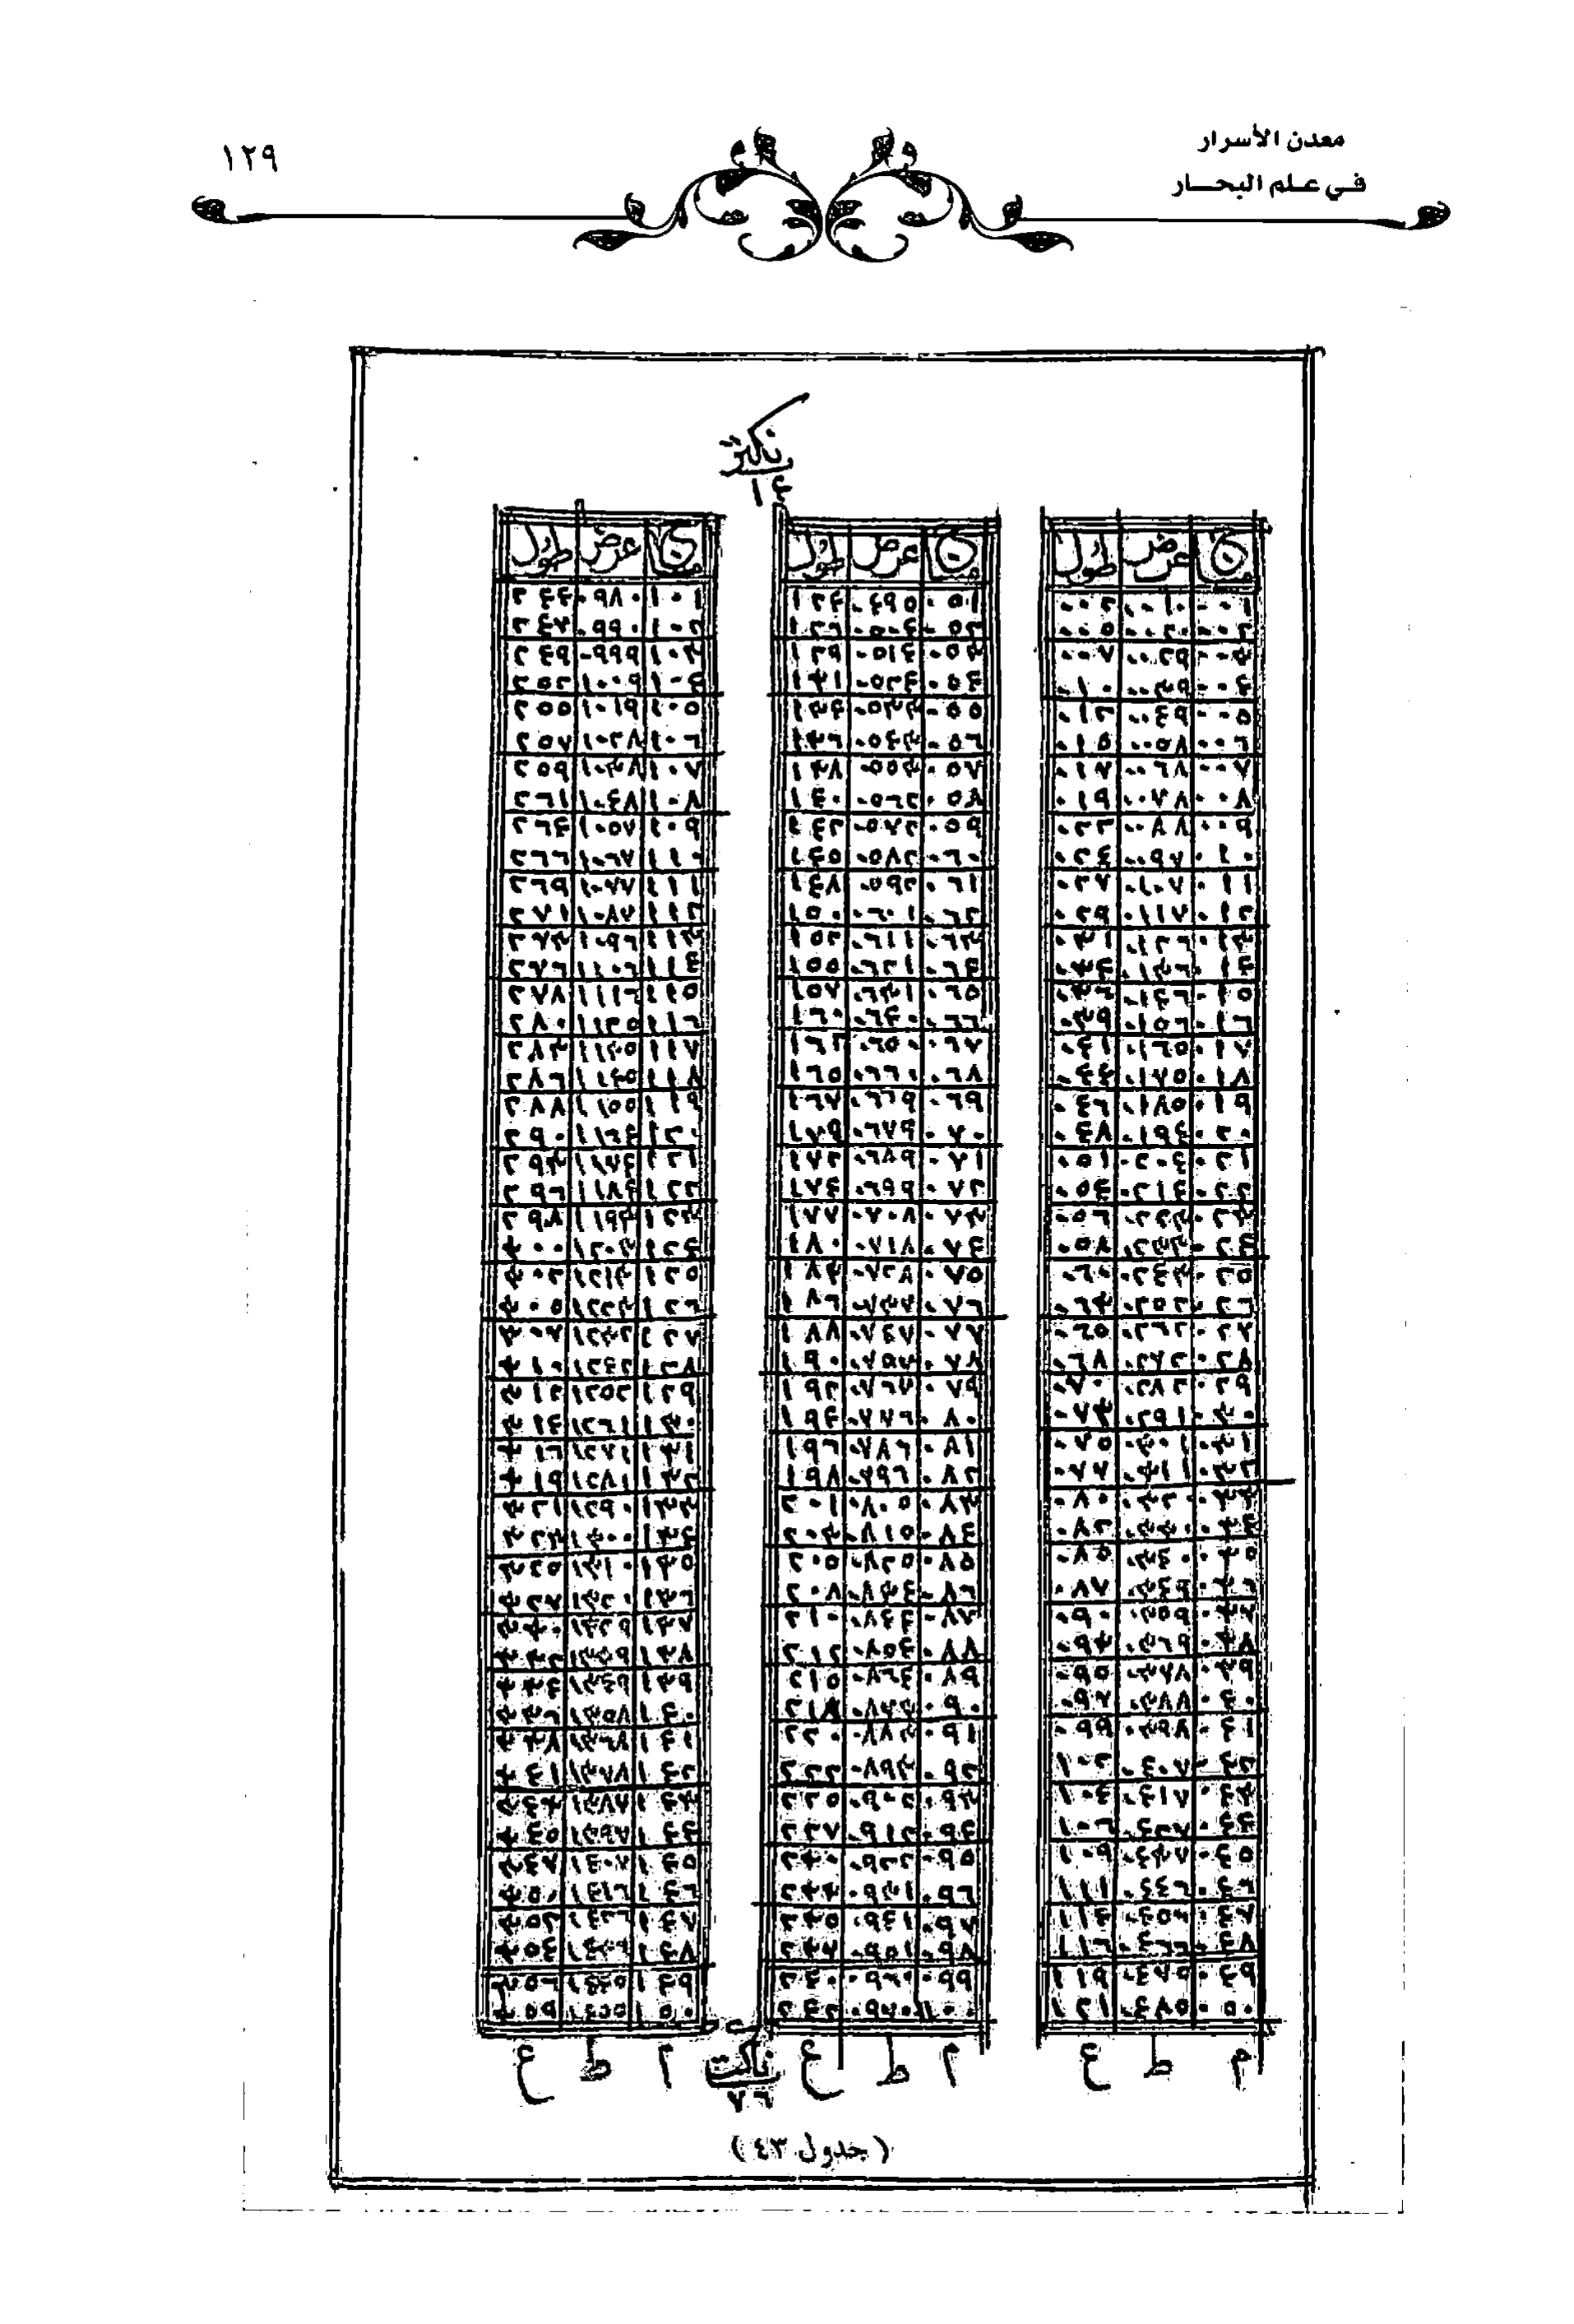 معدن الأسرار
في علم البحار
١٢٩
ناكتر
١٤
م عرض طول
٠٠١ ٠٠١٠ ٠٠٢
٠٠٢ ٠٠٢٠ ٠٠٥
٠٠٣ ٠٠٢٩ ٠٠٧
٠٠٤ ٠٠٣٩ ٠١٠
٠٠٥ ٠٠٤٩ ٠١٢
٠٠٦ ٠٠٥٨ ٠١٥
٠٠٧ ٠٠٦٨ ٠١٧
٠٠٨ ٠٠٧٨ ٠١٩
٠٠٩ ٠٠٨٨ ٠٢٢
٠١٠ ٠٠٩٧ ٠٢٤
٠١١ ٠١٠٧ ٠٢٧
٠١٢ ٠١١٧ ٠٢٩
٠١٣ ٠١٢٦ ٠٣١
٠١٤ ٠١٣٦ ٠٣٤
٠١٥ ٠١٤٦ ٠٣٦
٠١٦ ٠١٥٦ ٠٣٩
٠١٧ ٠١٦٥ ٠٤١
٠١٨ ٠١٧٥ ٠٤٤
٠١٩ ٠١٨٥ ٠٤٦
٠٢٠ ٠١٩٤ ٠٤٨
٠٢١ ٠٢٠٤ ٠٥١
٠٢٢ ٠٢١٤ ٠٥٣
٠٢٣ ٠٢٢٣ ٠٥٦
٠٢٤ ٠٢٣٣ ٠٥٨
٠٢٥ ٠٢٤٣ ٠٦٠
٠٢٦ ٠٢٥٢ ٠٦٣
٠٢٧ ٠٢٦٢ ٠٦٥
٠٢٨ ٠٢٧٢ ٠٦٨
٠٢٩ ٠٢٨٢ ٠٧٠
٠٣٠ ٠٢٩١ ٠٧٣
٠٣١ ٠٣٠١ ٠٧٥
٠٣٢ ٠٣١١ ٠٧٧
٠٣٣ ٠٣٢٠ ٠٨٠
٠٣٤ ٠٣٣٠ ٠٨٢
٠٣٥ ٠٣٤٠ ٠٨٥
٠٣٦ ٠٣٤٩ ٠٨٧
٠٣٧ ٠٣٥٩ ٠٩٠
٠٣٨ ٠٣٦٩ ٠٩٣
٠٣٩ ٠٣٧٨ ٠٩٥
٠٤٠ ٠٣٨٨ ٠٩٧
٠٤١ ٠٣٩٨ ٠٩٩
٠٤٢ ٠٤٠٧ ١٠٢
٠٤٣ ٠٤١٧ ١٠٤
٠٤٤ ٠٤٢٧ ١٠٦
٠٤٥ ٠٤٣٧ ١٠٩
٠٤٦ ٠٤٤٦ ١١١
٠٤٧ ٠٤٥٦ ١١٤
٠٤٨ ٠٤٦٦ ١١٦
٠٤٩ ٠٤٧٥ ١١٩
٠٥٠ ٠٤٨٥ ١٢١
م ط ع
م عرض طول
٠٥١ ٠٤٩٥ ١٢٤
٠٥٢ ٠٥٠٤ ١٢٦
٠٥٣ ٠٥١٤ ١٢٩
٠٥٤ ٠٥٢٤ ١٣١
٠٥٥ ٠٥٣٣ ١٣٤
٠٥٦ ٠٥٤٣ ١٣٦
٠٥٧ ٠٥٥٣ ١٣٨
٠٥٨ ٠٥٦٢ ١٤٠
٠٥٩ ٠٥٧٢ ١٤٣
٠٦٠ ٠٥٨٢ ١٤٥
٠٦١ ٠٥٩٢ ١٤٨
٠٦٢ ٠٦٠١ ١٥٠
٠٦٣ ٠٦١١ ١٥٢
٠٦٤ ٠٦٢١ ١٥٥
٠٦٥ ٠٦٣١ ١٥٧
٠٦٦ ٠٦٤٠ ١٦٠
٠٦٧ ٠٦٥٠ ١٦٢
٠٦٨ ٠٦٦٠ ١٦٥
٠٦٩ ٠٦٦٩ ١٦٧
٠٧٠ ٠٦٧٩ ١٦٩
٠٧١ ٠٦٨٩ ١٧٢
٠٧٢ ٠٦٩٩ ١٧٤
٠٧٣ ٠٧٠٨ ١٧٧
٠٧٤ ٠٧١٨ ١٨٠
٠٧٥ ٠٧٢٨ ١٨٣
٠٧٦ ٠٧٣٧ ١٨٦
٠٧٧ ٠٧٤٧ ١٨٨
٠٧٨ ٠٧٥٧ ١٩٠
٠٧٩ ٠٧٦٧ ١٩٢
٠٨٠ ٠٧٧٦ ١٩٤
٠٨١ ٠٧٨٦ ١٩٦
٠٨٢ ٠٧٩٦ ١٩٨
٠٨٣ ٠٨٠٥ ٢٠١
٠٨٤ ٠٨١٥ ٢٠٣
٠٨٥ ٠٨٢٥ ٢٠٥
٠٨٦ ٠٨٣٤ ٢٠٨
٠٨٧ ٠٨٤٤ ٢١٠
٠٨٨ ٠٨٥٤ ٢١٢
٠٨٩ ٠٨٦٤ ٢١٥
٠٩٠ ٠٨٧٣ ٢١٨
٠٩١ ٠٨٨٣ ٢٢٠
٠٩٢ ٠٨٩٣ ٢٢٢
٠٩٣ ٠٩٠٢ ٢٢٥
٠٩٤ ٠٩١٢ ٢٢٧
٠٩٥ ٠٩٢٢ ٢٣٠
٠٩٦ ٠٩٣١ ٢٣٣
٠٩٧ ٠٩٤١ ٢٣٥
٠٩٨ ٠٩٥١ ٢٣٧
٠٩٩ ٠٩٦٩ ٢٤٠
١٠٠ ٠٩٧٠ ٢٤٢
م ط ع
م عرض طول
١٠١ ٠٩٨٠ ٢٤٤
١٠٢ ٠٩٩٠ ٢٤٧
١٠٣ ٠٩٩٩ ٢٤٩
١٠٤ ١٠٠٩ ٢٥٢
١٠٥ ١٠١٩ ٢٥٥
١٠٦ ١٠٢٨ ٢٥٧
١٠٧ ١٠٣٨ ٢٥٩
١٠٨ ١٠٤٨ ٢٦١
١٠٩ ١٠٥٧ ٢٦٤
١١٠ ١٠٦٧ ٢٦٦
١١١ ١٠٧٧ ٢٦٩
١١٢ ١٠٨٧ ٢٧١
١١٣ ١٠٩٦ ٢٧٣
١١٤ ١١٠٦ ٢٧٦
١١٥ ١١١٦ ٢٧٨
١١٦ ١١٢٥ ٢٨٠
١١٧ ١١٣٥ ٢٨٣
١١٨ ١١٤٥ ٢٨٦
١١٩ ١١٥٥ ٢٨٨
١٢٠ ١١٦٤ ٢٩٠
١٢١ ١١٧٤ ٢٩٣
١٢٢ ١١٨٤ ٢٩٦
١٢٣ ١١٩٣ ٢٩٨
١٢٤ ١٢٠٣ ٣٠٠
١٢٥ ١٢١٣ ٣٠٢
١٢٦ ١٢٢٣ ٣٠٥
١٢٧ ١٢٣٢ ٣٠٧
١٢٨ ١٢٤٢ ٣١٠
١٢٩ ١٢٥٢ ٣١٢
١٣٠ ١٢٦١ ٣١٤
١٣١ ١٢٧١ ٣١٦
١٣٢ ١٢٨١ ٣١٩
١٣٣ ١٢٩٠ ٣٢١
١٣٤ ١٣٠٠ ٣٢٣
١٣٥ ١٣١٠ ٣٢٥
١٣٦ ١٣٢٠ ٣٢٧
١٣٧ ١٣٢٩ ٣٣٠
١٣٨ ١٣٣٩ ٣٣٢
١٣٩ ١٣٤٩ ٣٣٤
١٤٠ ١٣٥٨ ٣٣٦
١٤١ ١٣٦٨ ٣٣٨
١٤٢ ١٣٧٨ ٣٤١
١٤٣ ١٣٨٧ ٣٤٣
١٤٤ ١٣٩٧ ٣٤٥
١٤٥ ١٤٠٧ ٣٤٧
١٤٦ ١٤١٦ ٣٥٠
١٤٧ ١٤٢٦ ٣٥٢
١٤٨ ١٤٣٦ ٣٥٤
١٤٩ ١٤٤٥ ٣٥٦
١٥٠ ١٤٥٥ ٣٥٩
م ط ع
ناكت
٧٦
(جدول ٤٣)